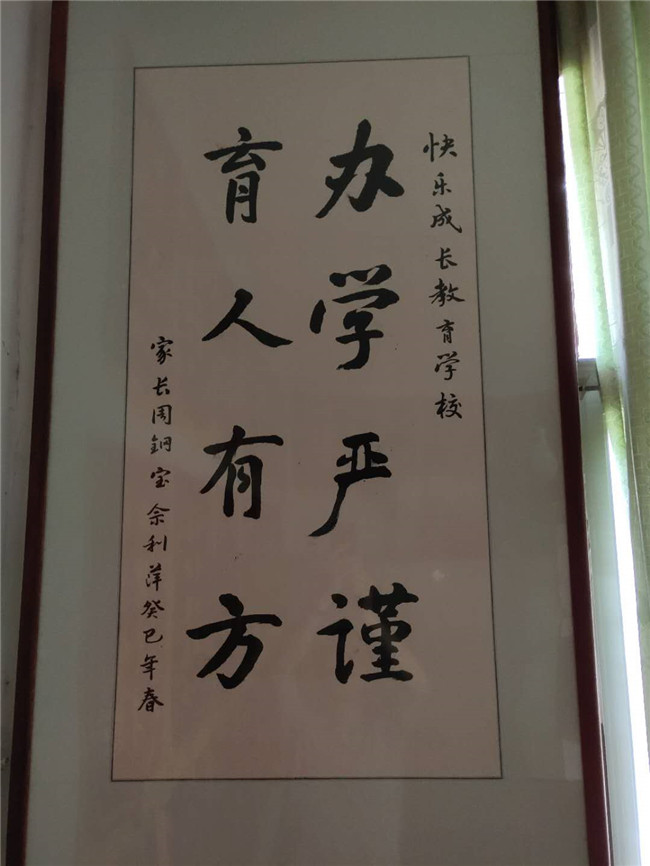 快乐成长教育学校
办学严谨
育人有方
家长周钢宝佘利萍癸巳年春